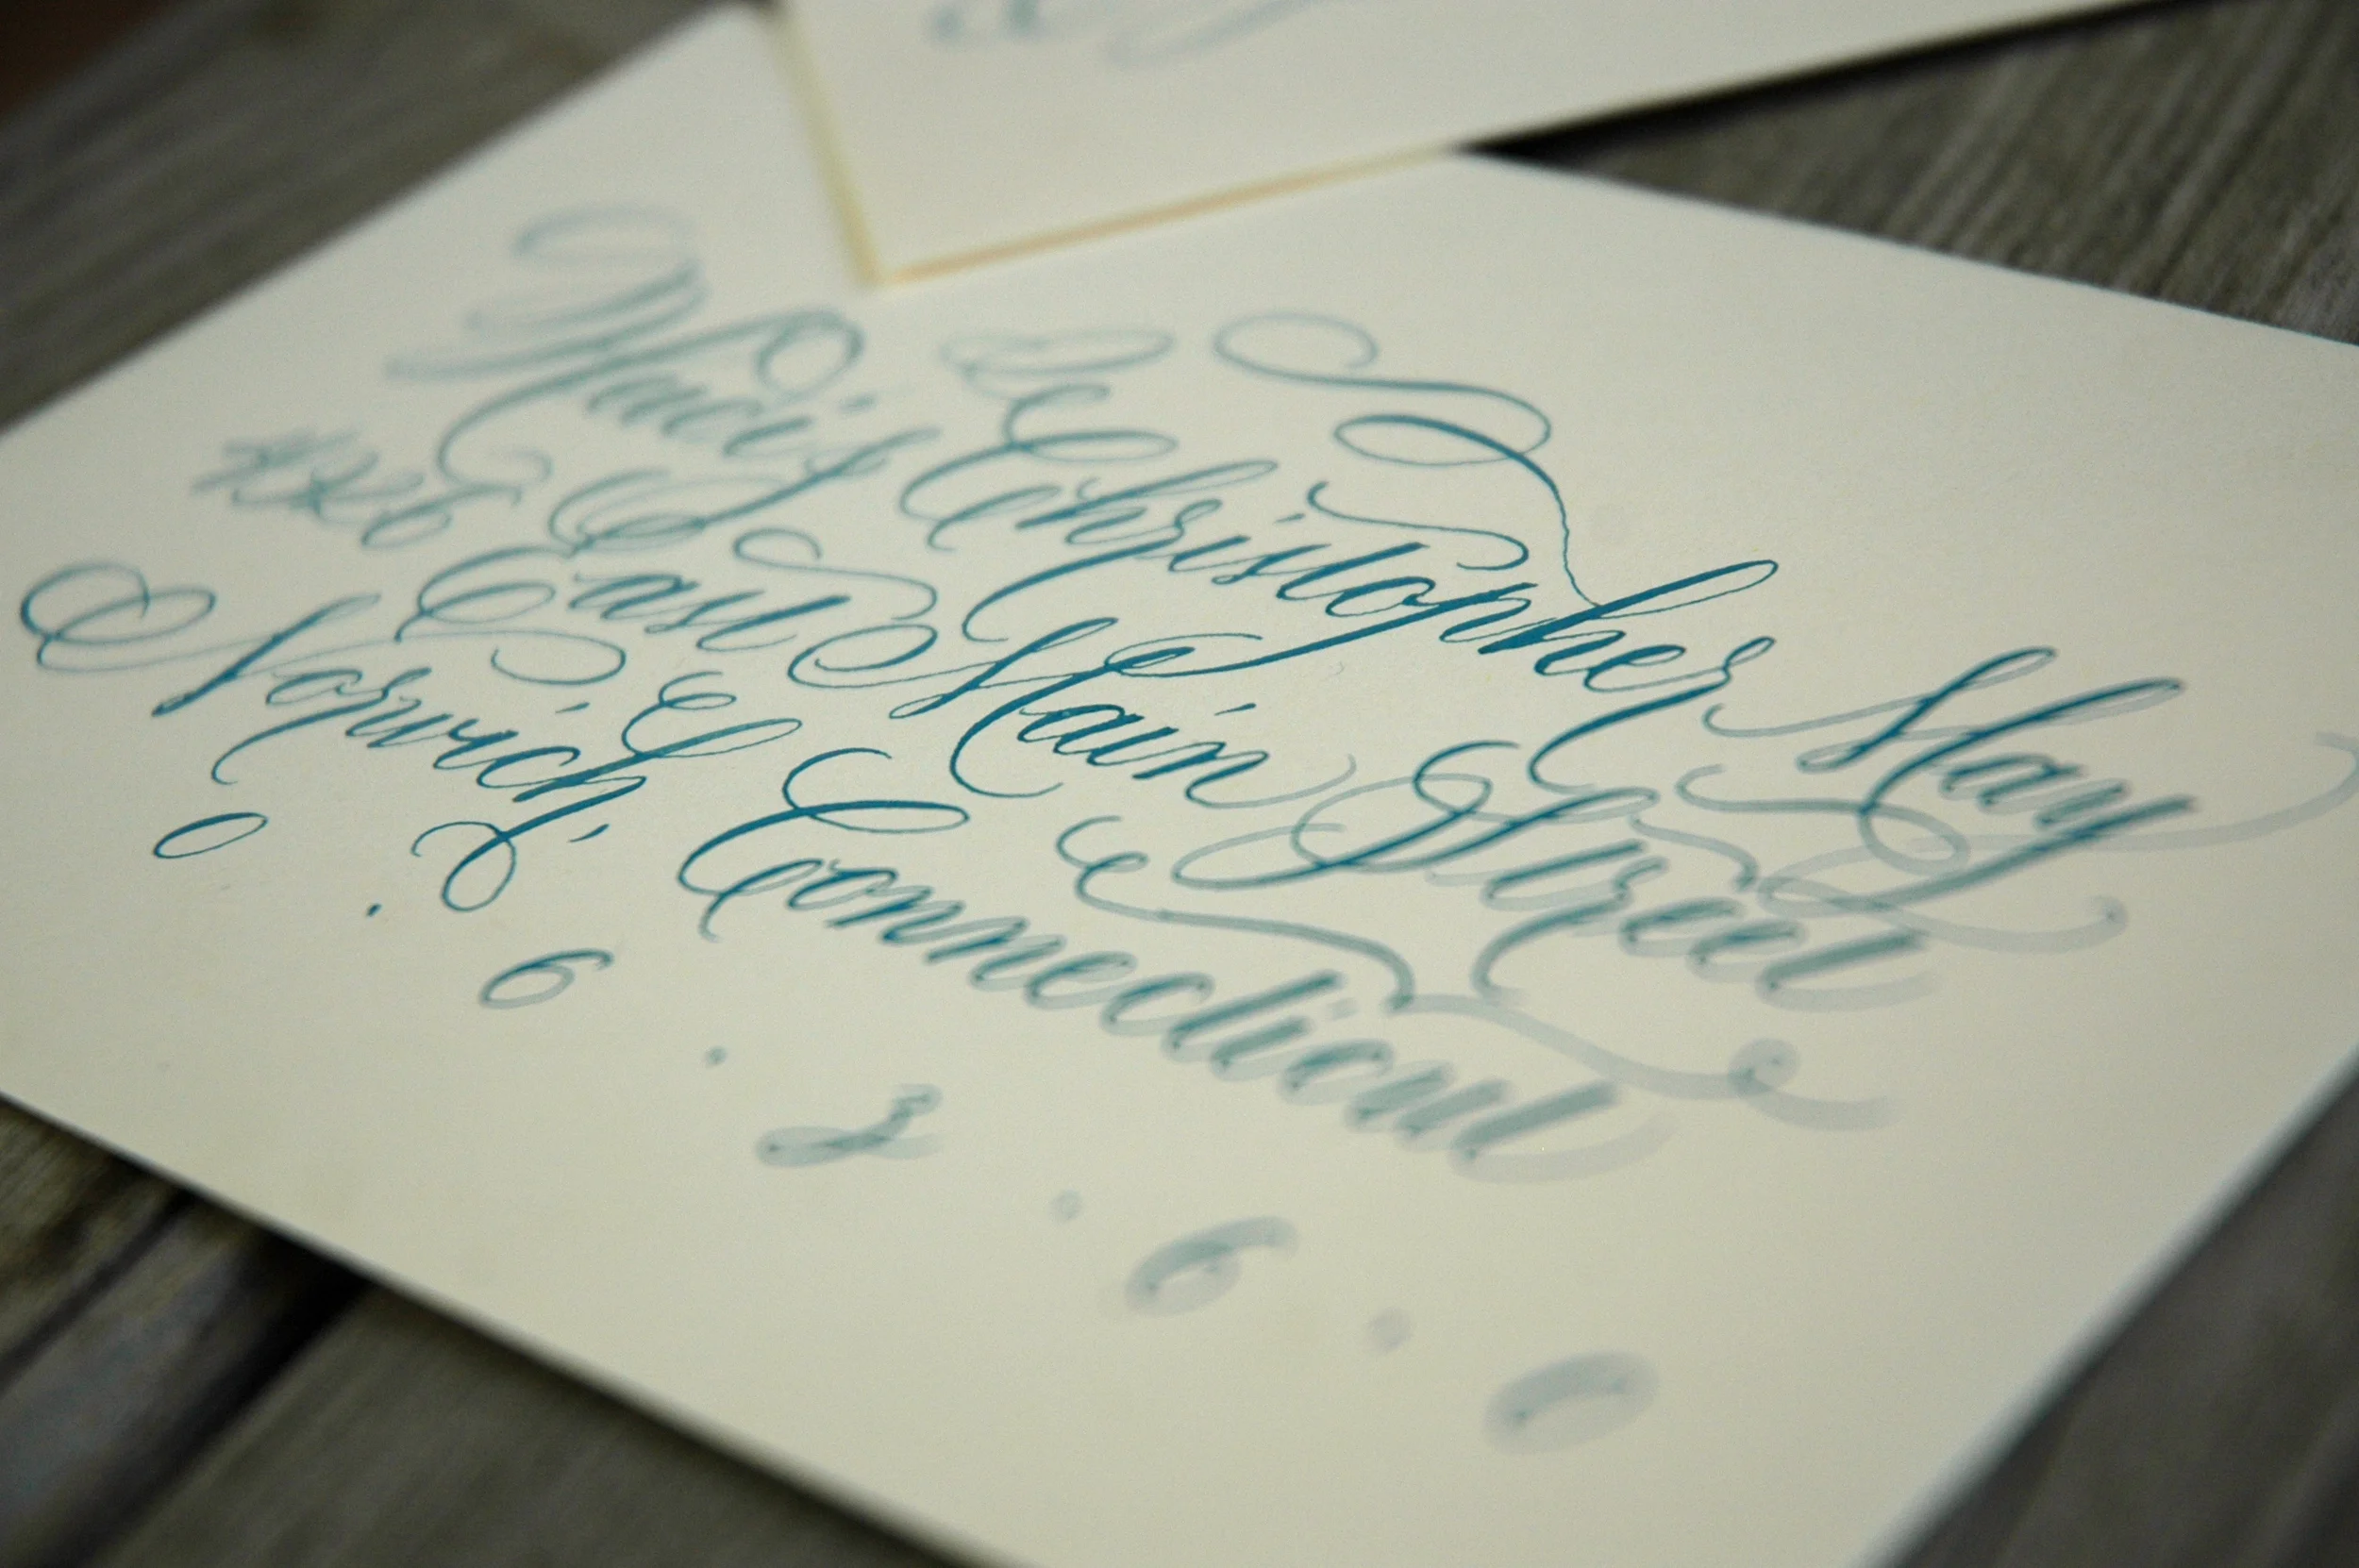 & Christopher May
East Main Street
Norwich, Connecticut
0 . 6 . 3 . 6 . 0